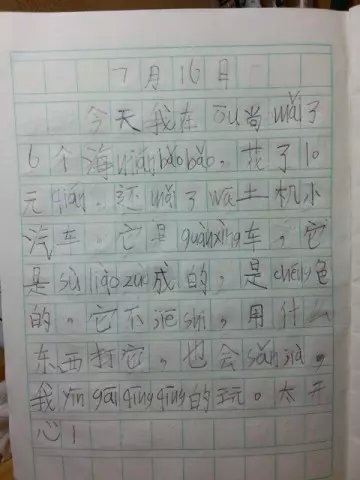 7月16日
今天我在ōu尚mǎi了
6个海mián bǎobǎo。花了10
元qián。还mǎi了wā土机小
汽车。它是guànxìng车，它
是sù liào zuò成的。是chéng色
的。它不jiē shi，用什么
东西打它，也会sǎn jià。
我yīn gāi qīngqīng的玩。太开
心！